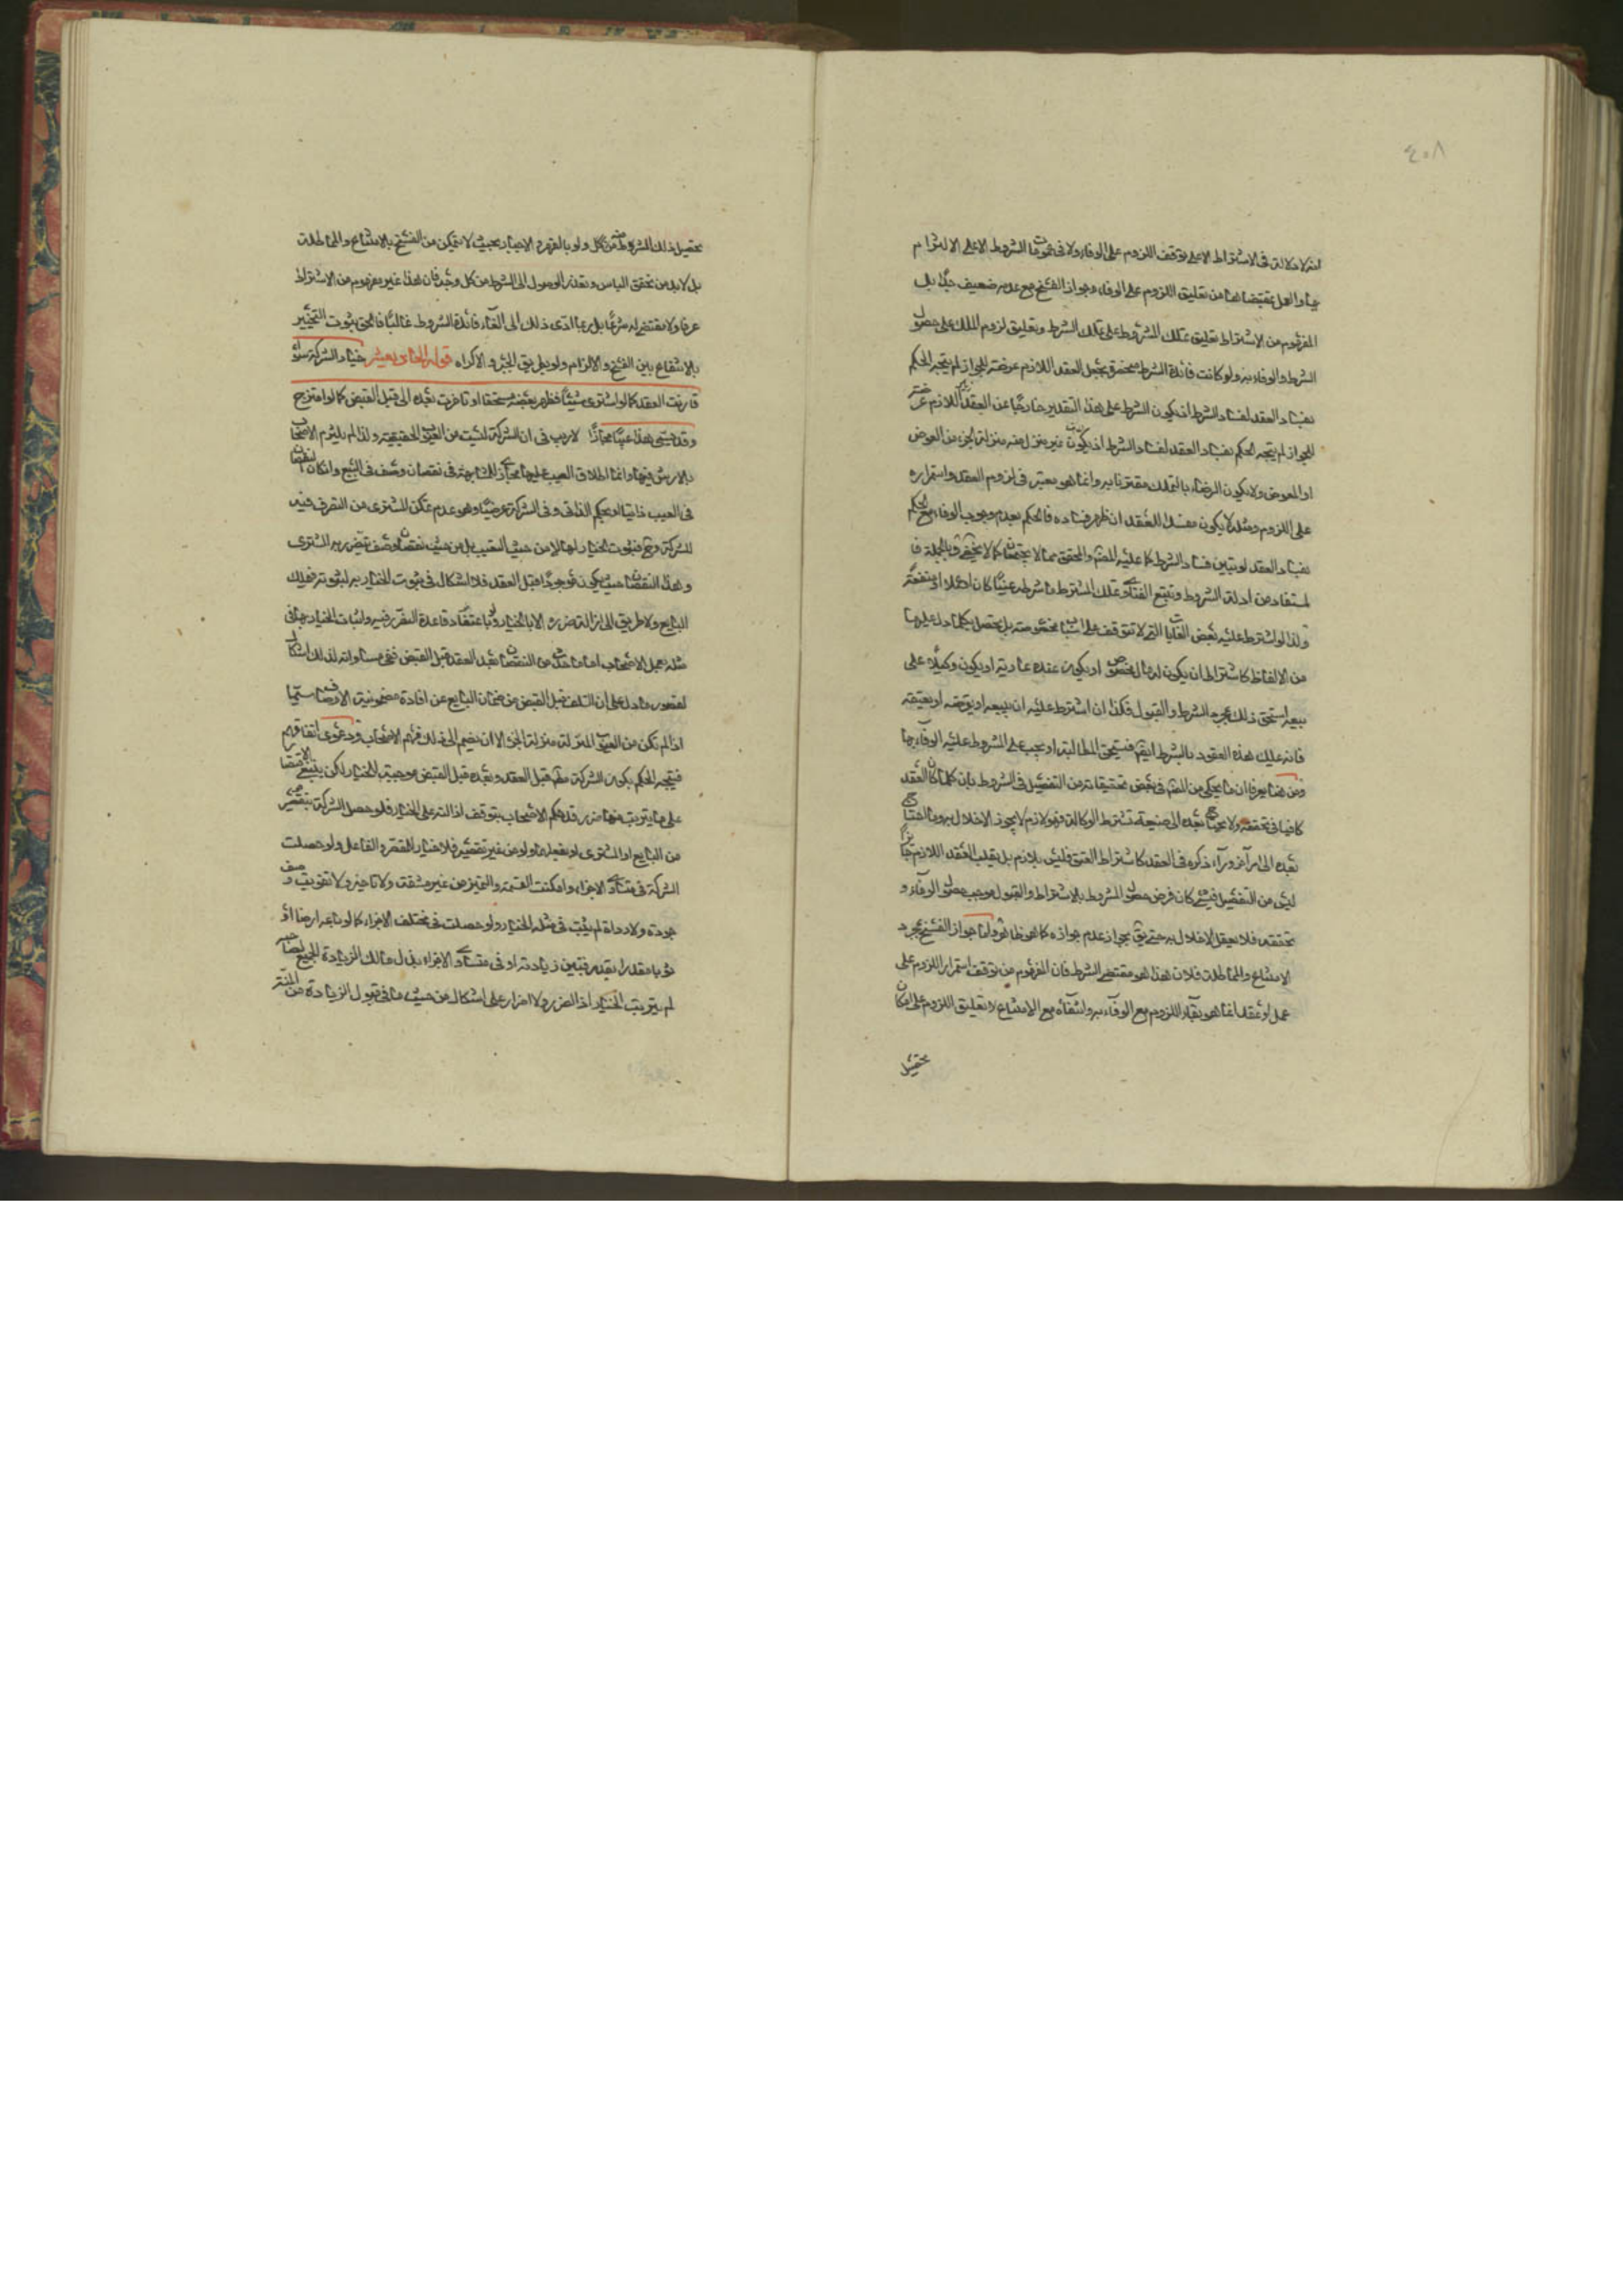 ٤٠٨
انه لا دلالة فى الاشتراط الا على توقف اللزوم على الوفاء ولا فى عمومات الشروط الا على الالتزام
بها والعمل بمقتضاها من تعليق اللزوم على الوفاء وجواز الفسخ مع عدمه ضعيف جدا بل
المفهوم من الاشتراط تعليق تملك المشروط على تملك الشرط وتعليق لزوم الملك على حصول
الشرط والوفاء به ولو كانت فائدة الشرط منحصرة بجعل العقد اللازم عرضة للجواز لم يتجه الحكم
بفساد العقد لفساد الشرط اذ يكون الشرط على هذا التقدير خارجا عن العقد اللازم عرضة
للجواز لم يتجه الحكم بفساد العقد لفساد الشرط اذ يكون غير منزل منه منزلة الجزء من العوض
او المعوض ولا يكون الرضاء بالتملك مقترنا به وانما هو معتبر فى لزوم العقد واستمراره
على اللزوم ومثله لا يكون مفسدا للعقد ان ظهر فساده فالحكم بعدم وجوب الوفاء مع الحكم
بفساد العقد لو تبين فساد الشرط كما عليه المصنف والمحقق مما لا يجتمعان كما لا يخفى وبالجملة فا
لمستفاد من ادلة الشروط وتتبع الفتاوى تملك المشترط ما شرطه عينا كان او عملا او منفعة
ولذا لو اشترط عليه بعض الغايات التى لا تتوقف على اسباب مخصوصة بل يحصل بكلما دل عليها
من الالفاظ كاشتراط ان يكون له مال مخصوص او يكون عنده عارية او يكون وكيلا على
بيعه استحق ذلك بمجرد الشرط والقبول فكذا ان اشترط عليه ان يبيعه او يوقفه او يعتقه
فانه يملك هذه العقود بالشرط ايضا فيستحق المطالبة او يجب على المشروط عليه الوفاء بها
ومن هنا يعرف ان ما يحكى من الشهيد فى بعض تحقيقاته من التفصيل فى الشروط بان كلما كان العقد
كافيا فى تحققه ولا يحتاج بعده الى صيغة كشرط الوكالة فهو لازم لا يجوز الاخلال به وما احتاج
بعده الى امر آخر وراء ذكره فى العقد كاشتراط العتق فليس بلازم بل يقلب العقد اللازم جائزا
ليس من التفصيل فى شىء كان فرض حصول المشروط بالاشتراط والقبول موجب حصول الوفاء و
تحققه فلا يعقل الاخلال به حتى يق بجواز عدم جوازه كما هو ظاهر واما جواز الفسخ بمجرد
الامتناع والمماطلة فلان هذا هو مقتضى الشرط فان المفهوم من توقف استمرار اللزوم على
عمل او عقد انما هو بقاء اللزوم مع الوفاء به وانتفاءه مع الامتناع لا تعليق اللزوم على امكان
تحصيل
تحصيل ذلك المشروط من كل ولو بالقهر والاجبار بحيث لا يتمكن من الفسخ بالامتناع والمماطلة
بل لا بد من تحقق الياس وتعذر الوصول الى الشرط من كل وجه فان هذا غير مفهوم من الاشتراط
عرفا ولا مقتضى له شرعا بل ربما ادى ذلك الى الغاء فائدة الشروط غالبا فالحق ثبوت التخيير
بالامتناع بين الفسخ والالزام ولو بطريق الجبر والاكراه قوله الحادى عشر خيار الشركة سواء
قارنت العقد كما لو اشترى شيئا فظهر بعضه مستحقا او تاخرت بعده الى قبل القبض كما لو امتزج
وقد يسمى هذا عيبا مجازا لا ريب فى ان الشركة ليست من العيوب الحقيقية ولذا لم يلتزم الاصحاب
بالارش فيها وانما اطلاق العيب عليها مجاز للمشابهة فى نقصان وصف فى المبيع وان كان النقصان
فى العيب ذاتيا او بحكم الذاتى وفى الشركة عرضيا وهو عدم تمكن المشترى من التصرف فيه
للشركة وح فثبوت الخيار لها لا من حيث العيب بل من حيث نقصان وصف يتضرر به المشترى
وهذا النقصان حيث يكون موجودا قبل العقد فلا اشكال فى ثبوت الخيار به لثبوته فى ملك
البايع ولا طريق الى ازالة ضرره الا بالخيار وبا عتضاد قاعدة الضرر فيه واثبات الخيار بها فى
مثله بعمل الاصحاب اما ما حدث من النقصان بعد العقد قبل القبض ففى مساواته لذلك اشكال
لقصور ما دل على ان التلف قبل القبض من ضمان البايع عن افادة مضمونية الاوصاف سيما
اذا لم تكن من العيوب المنزلة منزلة الجزء الا ان يضم الى ذلك فهم الاصحاب ودعوى اتفاقهم
فيتجه الحكم بكون الشركة مطلقا قبل العقد وبعده قبل القبض موجبة للخيار لكن ينبغى الاقتصار
على ما يترتب منها ضرر قد حكم الاصحاب بتوقف ازالته على الخيار فلو حصل الشركة بتقصير
من البايع او المشترى او بفعلهما ولو من غير تقصير فلا خيار للمقصر والفاعل ولو حصلت
الشركة فى متساوى الاجزاء وامكنت القسمة والتميز من غير مشقة ولا تاخير ولا تفويت وصف
جودة ولا رداءة لم يثبت فى مثله الخيار ولو حصلت فى مختلف الاجزاء كما لو باعه ارضا او
ثوبا مقدرا بقدر فتبين زيادته او فى متساوى الاجزاء بذل مالك الزيادة الجميع لصاحبه
لم يترتب الخيار اذ لا ضرر ولا اضرار على اشكال من حيث ما فى قبول الزيادة من المنة